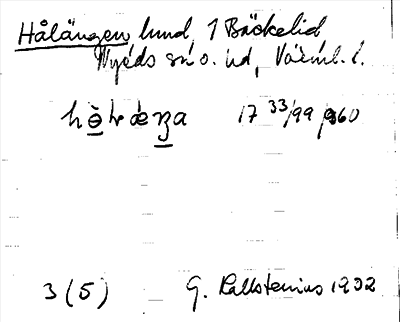 Hålängen lund, 1 Bäckelid,
Nyeds sn o. hd, Värml. l.
17 33/99 960
3 (5) G. Kallstenius 1932